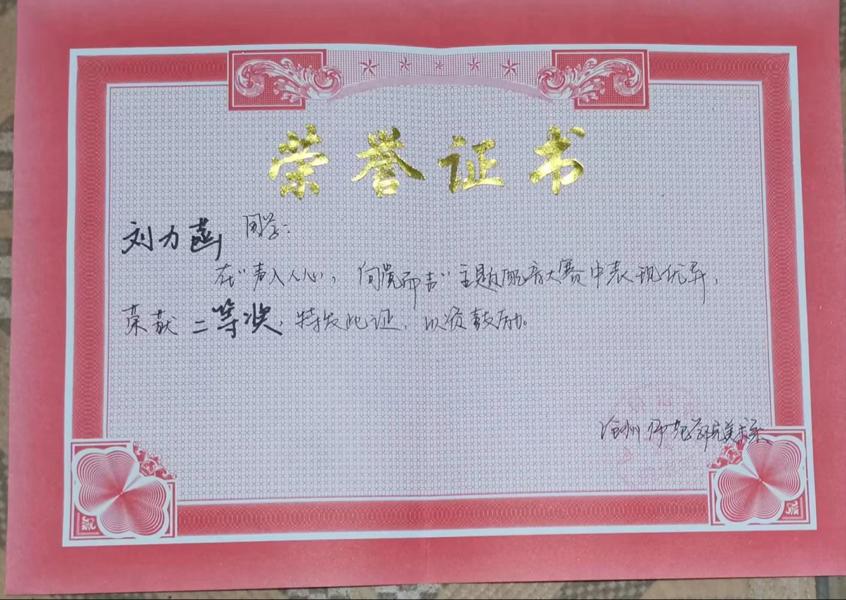 荣誉证书
刘力菡 同学:
在"声入人心,向党而声"主题配音大赛中表现优异,
荣获 二等奖,特发此证,以资鼓励。
沧州师范学院美术系